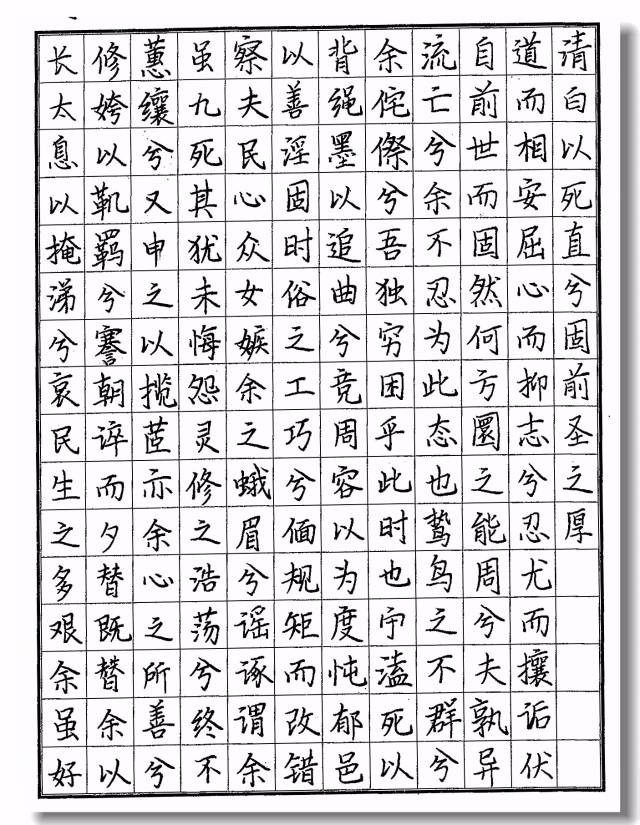 长太息以掩涕兮哀民生之多艰余虽好
修姱以鞿羁兮謇朝谇而夕替既替余以
蕙纕兮又申之以揽茝亦余心之所善兮
虽九死其犹未悔怨灵修之浩荡兮终不
察夫民心众女嫉余之蛾眉兮谣诼谓余
以善淫固时俗之工巧兮偭规矩而改错
背绳墨以追曲兮竞周容以为度忳郁邑
余侘傺兮吾独穷困乎此时也宁溘死以
流亡兮余不忍为此态也鸷鸟之不群兮
自前世而固然何方圜之能周兮夫孰异
道而相安屈心而抑志兮忍尤而攘诟伏
清白以死直兮固前圣之厚